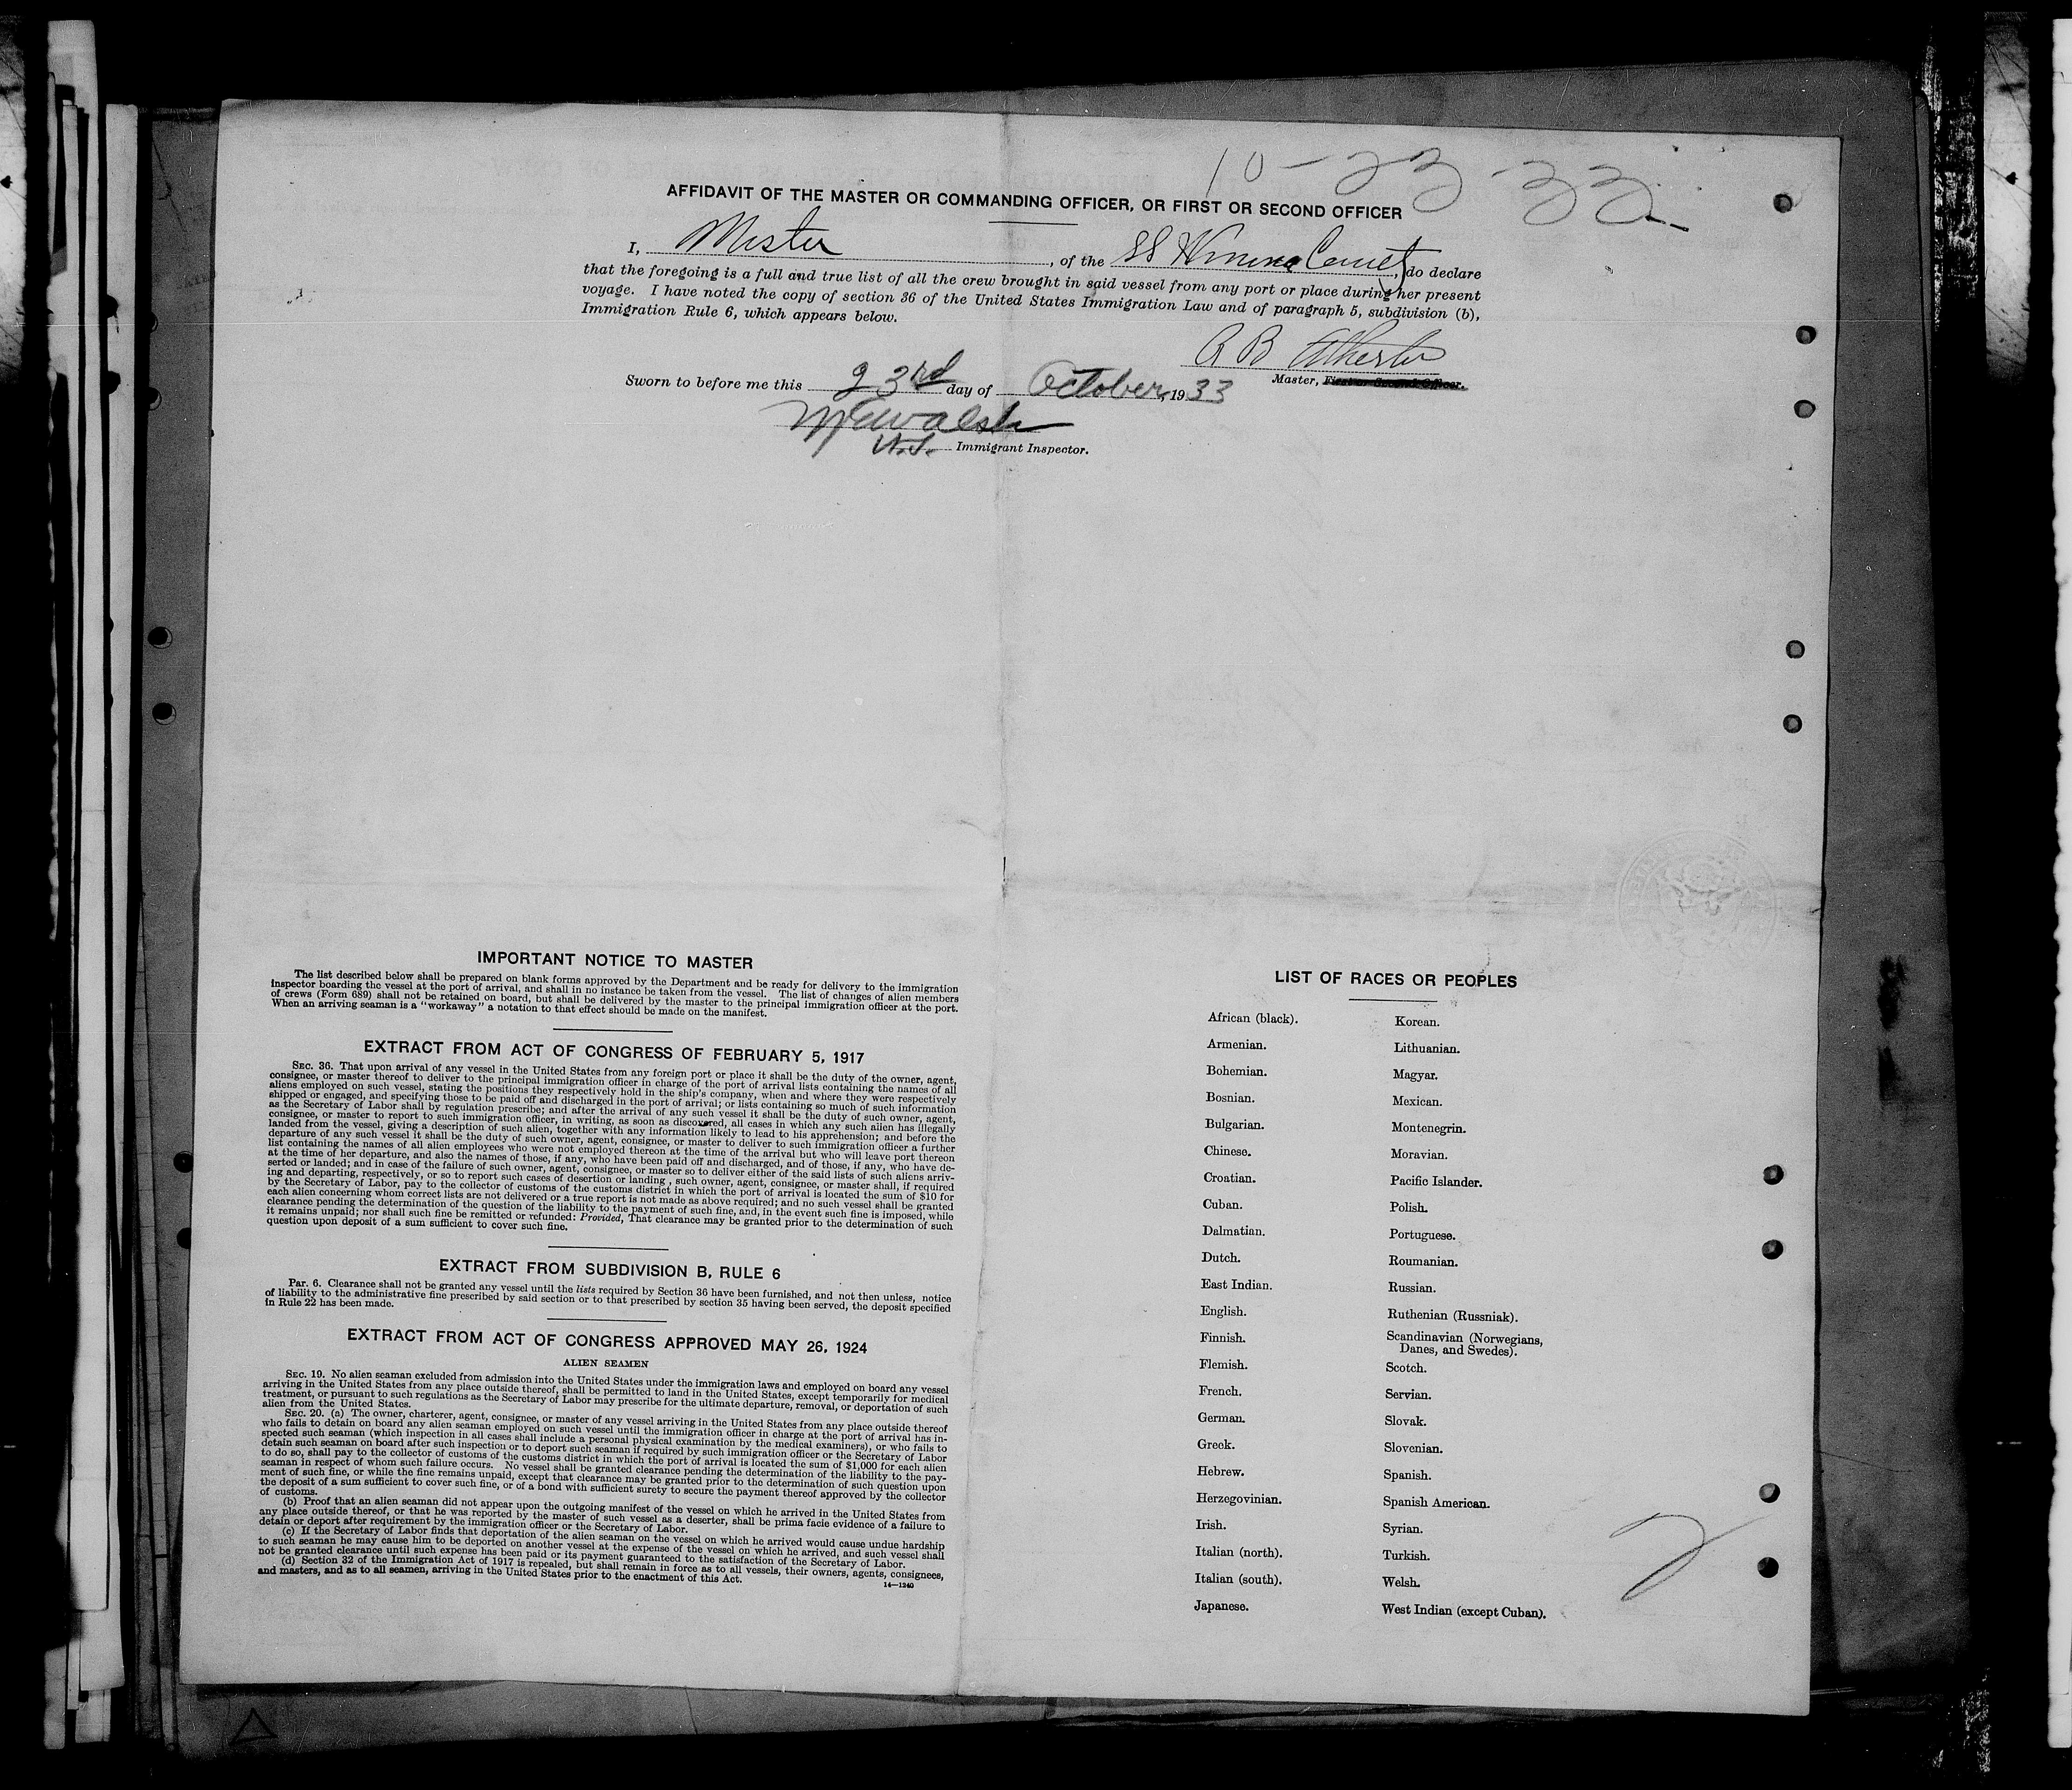 10-23-33
AFFIDAVIT OF THE MASTER OR COMMANDING OFFICER, OR FIRST OR SECOND OFFICER
I, Master, of the SS Comet, do declare
that the foregoing is a full and true list of all the crew brought in said vessel from any port or place during her present
voyage. I have noted the copy of section 36 of the United States Immigration Law and of paragraph 5, subdivision (b),
Immigration Rule 6, which appears below.
A B
Master, First or Second Officer.
Sworn to before me this 23rd day of October, 1933
Walsh
U.S. Immigrant Inspector.
IMPORTANT NOTICE TO MASTER
The list described below shall be prepared on blank forms approved by the Department and be ready for delivery to the immigration
inspector boarding the vessel at the port of arrival, and shall in no instance be taken from the vessel. The list of changes of alien members
of crews (Form 689) shall not be retained on board, but shall be delivered by the master to the principal immigration officer at the port.
When an arriving seaman is a "workaway" a notation to that effect should be made on the manifest.
EXTRACT FROM ACT OF CONGRESS OF FEBRUARY 5, 1917
SEC. 36. That upon arrival of any vessel in the United States from any foreign port or place it shall be the duty of the owner, agent,
consignee, or master thereof to deliver to the principal immigration officer in charge of the port of arrival lists containing the names of all
aliens employed on such vessel, stating the positions they respectively hold in the ship's company, when and where they were respectively
shipped or engaged, and specifying those to be paid off and discharged in the port of arrival; or lists containing so much of such information
as the Secretary of Labor shall by regulation prescribe; and after the arrival of any such vessel it shall be the duty of such owner, agent,
consignee, or master to report to such immigration officer, in writing, as soon as discovered, all cases in which any such alien has illegally
landed from the vessel, giving a description of such alien, together with any information likely to lead to his apprehension; and before the
departure of any such vessel it shall be the duty of such owner, agent, consignee, or master to deliver to such immigration officer a further
list containing the names of all alien employees who were not employed thereon at the time of the arrival but who will leave port thereon
at the time of her departure, and also the names of those, if any, who have been paid off and discharged, and of those, if any, who have de-
serted or landed; and in case of the failure of such owner, agent, consignee, or master so to deliver either of the said lists of such aliens arriv-
ing and departing, respectively, or so to report such cases of desertion or landing , such owner, agent, consignee, or master shall, if required
by the Secretary of Labor, pay to the collector of customs of the customs district in which the port of arrival is located the sum of $10 for
each alien concerning whom correct lists are not delivered or a true report is not made as above required; and no such vessel shall be granted
clearance pending the determination of the question of the liability to the payment of such fine, and, in the event such fine is imposed, while
it remains unpaid; nor shall such fine be remitted or refunded: Provided, That clearance may be granted prior to the determination of such
question upon deposit of a sum sufficient to cover such fine.
EXTRACT FROM SUBDIVISION B, RULE 6
Par. 6. Clearance shall not be granted any vessel until the lists required by Section 36 have been furnished, and not then unless, notice
of liability to the administrative fine prescribed by said section or to that prescribed by section 35 having been served, the deposit specified
in Rule 22 has been made.
EXTRACT FROM ACT OF CONGRESS APPROVED MAY 26, 1924
ALIEN SEAMEN
SEC. 19. No alien seaman excluded from admission into the United States under the immigration laws and employed on board any vessel
arriving in the United States from any place outside thereof, shall be permitted to land in the United States, except temporarily for medical
treatment, or pursuant to such regulations as the Secretary of Labor may prescribe for the ultimate departure, removal, or deportation of such
alien from the United States.
SEC. 20. (a) The owner, charterer, agent, consignee, or master of any vessel arriving in the United States from any place outside thereof
who fails to detain on board any alien seaman employed on such vessel until the immigration officer in charge at the port of arrival has in-
spected such seaman (which inspection in all cases shall include a personal physical examination by the medical examiners), or who fails to
detain such seaman on board after such inspection or to deport such seaman if required by such immigration officer or the Secretary of Labor
to do so, shall pay to the collector of customs of the customs district in which the port of arrival is located the sum of $1,000 for each alien
seaman in respect of whom such failure occurs. No vessel shall be granted clearance pending the determination of the liability to the pay-
ment of such fine, or while the fine remains unpaid, except that clearance may be granted prior to the determination of such question upon
the deposit of a sum sufficient to cover such fine, or of a bond with sufficient surety to secure the payment thereof approved by the collector
of customs.
(b) Proof that an alien seaman did not appear upon the outgoing manifest of the vessel on which he arrived in the United States from
any place outside thereof, or that he was reported by the master of such vessel as a deserter, shall be prima facie evidence of a failure to
detain or deport after requirement by the immigration officer or the Secretary of Labor.
(c) If the Secretary of Labor finds that deportation of the alien seaman on the vessel on which he arrived would cause undue hardship
to such seaman he may cause him to be deported on another vessel at the expense of the vessel on which he arrived, and such vessel shall
not be granted clearance until such expense has been paid or its payment guaranteed to the satisfaction of the Secretary of Labor.
(d) Section 32 of the Immigration Act of 1917 is repealed, but shall remain in force as to all vessels, their owners, agents, consignees,
and masters, and as to all seamen, arriving in the United States prior to the enactment of this Act.
14—1240
LIST OF RACES OR PEOPLES
African (black).
Armenian.
Bohemian.
Bosnian.
Bulgarian.
Chinese.
Croatian.
Cuban.
Dalmatian.
Dutch.
East Indian.
English.
Finnish.
Flemish.
French.
German.
Greek.
Hebrew.
Herzegovinian.
Irish.
Italian (north).
Italian (south).
Japanese.
Korean.
Lithuanian.
Magyar.
Mexican.
Montenegrin.
Moravian.
Pacific Islander.
Polish.
Portuguese.
Roumanian.
Russian.
Ruthenian (Russniak).
Scandinavian (Norwegians,
Danes, and Swedes).
Scotch.
Servian.
Slovak.
Slovenian.
Spanish.
Spanish American.
Syrian.
Turkish.
Welsh.
West Indian (except Cuban).
2